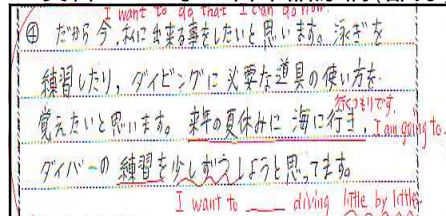 I want to do that I can do now
④ だから今、私に出来る事をしたいと思います。泳ぎを
練習したり、ダイビングに必要な道具の使い方を
覚えたいと思います。来年の夏休みに海に行き,
行くつもりです。
I am going to.
ダイバーの練習を少しずつしようと思ってます。
I want to ___ diving little by little.